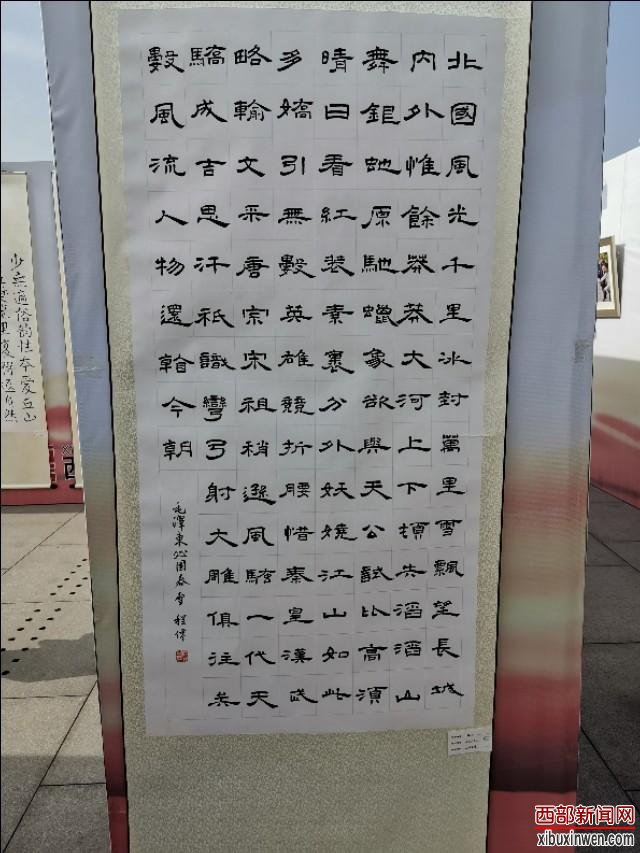 北國風光千里冰封萬里雪飄望長城
内外惟餘莽莽大河上下頓失滔滔山
舞銀蛇原馳蠟象欲與天公試比高須
晴日看紅裝素裹分外妖嬈江山如此
多嬌引無數英雄競折腰惜秦皇漢武
略輸文采唐宗宋祖稍遜風騷一代天
驕成吉思汗祇識彎弓射大雕俱往矣
數風流人物還看今朝
毛澤東沁園春雪 程偉
少無適俗韻性本愛丘山
里復得返自然
西部新闻网
xibuxinwen.com